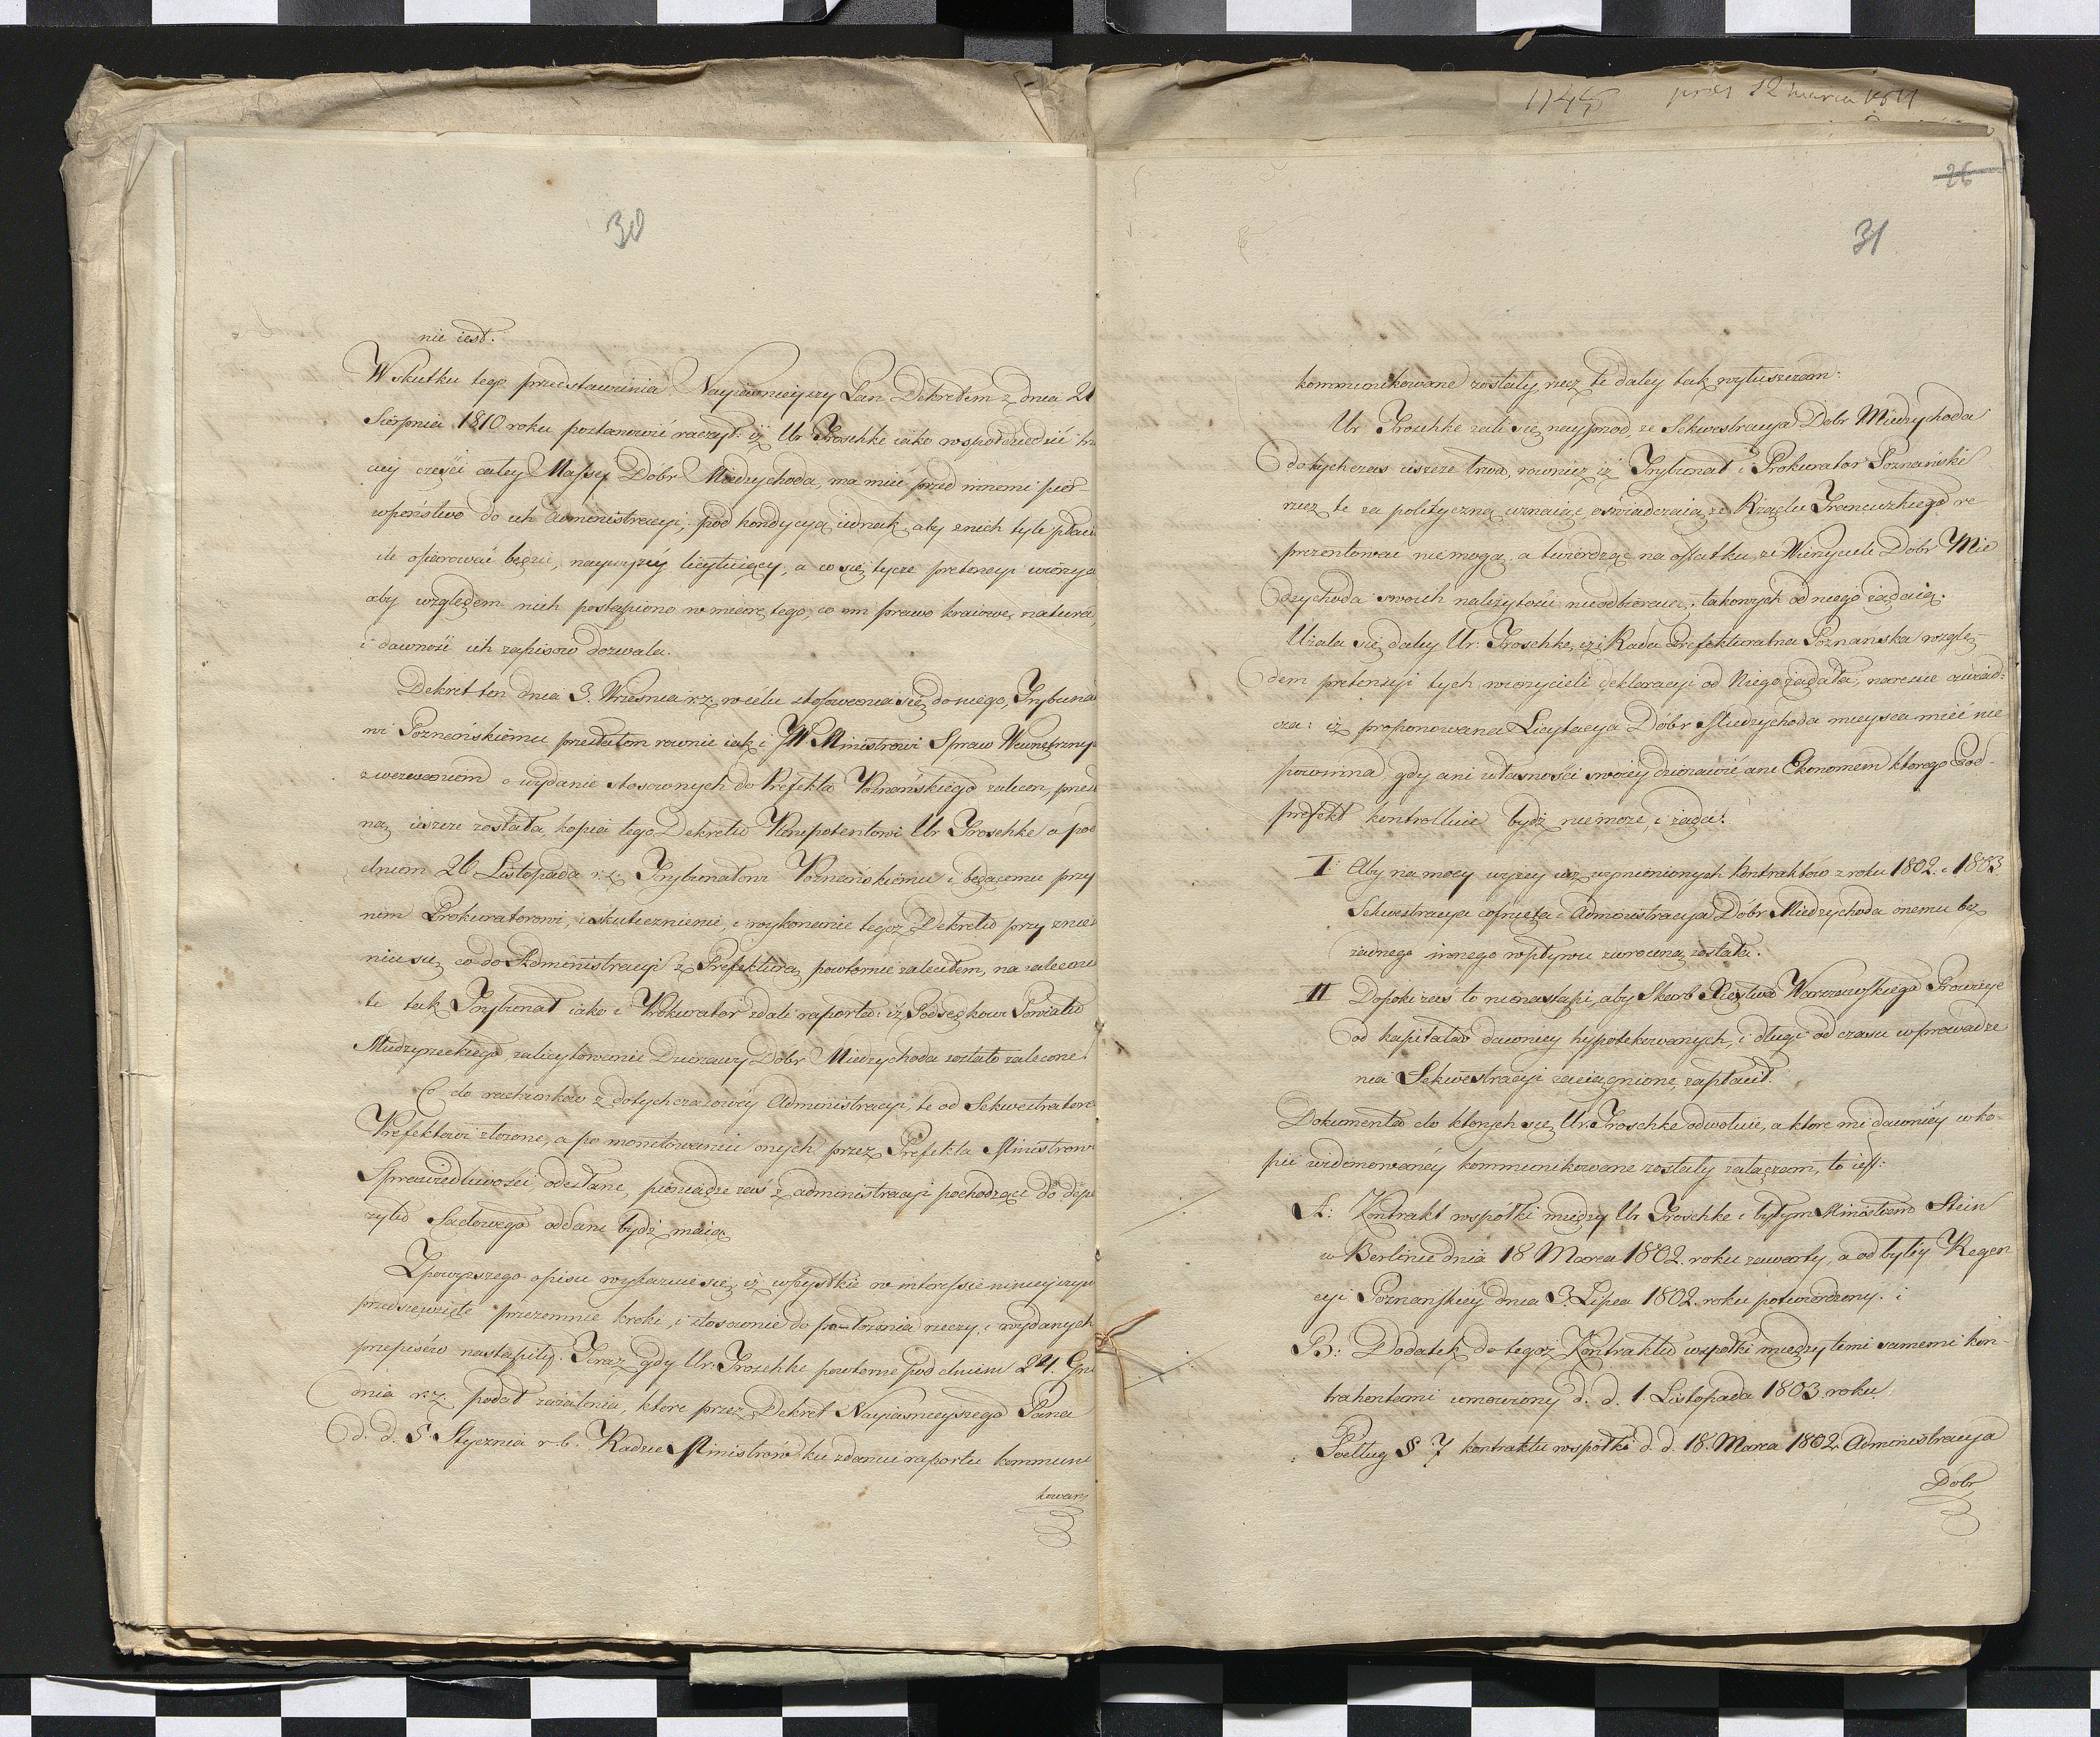 30
nie iest.
W skutku tego przedstawienia Nayiasnieyszy Pan Dekretem z dnia 21
Sierpnia 1810 roku postanowić raczył: iż Ur Groschke iako wspołdziedzic
ciej części całey Massy Dobr Miedzychoda, ma mieć przed innemi pier-
wszeństwo do ich Administracyi, pod kondycyą iednak, aby z nich tyle płacił
ile ofiarować będzie, naywyżey licytuiący, a co się tycze pretensyi wierzy
aby względem nich postąpiono w miarę tego, co im prawo kraiowe, natura,
i dawność ich zapisow dozwala.
Dekret ten dnia 3. Wrzesnia r.z. w celu stosowania się do niego, Trybuna
wi Poznańskiemu przesłałem rownie iak i JW Ministrowi Spraw Wewnętrzny
z wezwaniem o wydanie stosownych do Prefekta Poznańskiego zaleceń, przesła
na ieszcze została kopia tego Dekretu Plenipotentowi Ur Groschke a pod
dniem 26 Listopada r.z. Trybunałowi Poznańskiemu i będącemu przy
nim Prokuratorowi, uskutecznienie, i wykonanie tegoż Dekretu przy znie
niu się co do Administracyi z Prefekturą powtornie zaleciłem, na zalecenie
te tak Trybunał iako i Prokurator zdali raporta: iż Podsędkowi Powiatu
Miedzyrzeckiego, zalicytowanie Dzierzawy Dobr Miedzychoda zostało zalecone.
Co do rachunkow z dotychczasowey Administracyi, te od Sekwestratora
Prefektowi złozone, a po monitowaniu onych przez Prefekta Ministrowi
Sprawiedliwości odesłane, pieniądze zaś z administracyi pochodzące do depo
zytu Sądowego oddane bydź maią.
Z powyższego opisu wykazuie się, iż wszystkie w interessie ninieyszym
przedsięwzięte przezemnie kroki, i stosownie do położenia rzeczy, i wydanych
przepisów nastąpiły. Teraz gdy Ur. Groschke powtorne pod dniem 24. Gru
dnia r.z. podał zażalenia, ktore przez Dekret Nayiasnieyszego Pana
d. d. 5. Stycznia r.b. Radzie Ministrów ku zdaniu raportu kommuni
kowane
1145 pras 12 marca 1811
26
31
kommunikowane zostały, rzecz te daley tak wyłuszczam:
Ur Groschke żali się nayprzod, że Sekwestracya Dobr Miedzychoda
dotychczas ieszcze trwa, rownież iż Trybunał i Prokurator Poznański
rzecz te za polityczną uznaiąc, oświadczaią, że Rządu Francuzkiego re
prezentować nie mogą, a twierdząc na ostatku, że Wierzyciele Dobr Mie
dzychoda swoich należytości nieodbieraiąc, takowych od niego żądaią.
Użala się daley Ur. Groschke, iż i Rada Prefekturalna Poznańska wzglę-
dem pretensyi tych wierzycieli deklaracyi od Niego żądała, naresz­cie oświad-
cza: iż proponowana Licytacya Dóbr Miedzychoda mieysca mieć nie
powinna, gdy ani własności swoiey dzierzawić, ani Ekonomem ktorego Pod-
prefekt kontrolluie bydź nie może, i żąda:
I: Aby na mocy wyżey iuż wzmienionych Kontraktów z roku 1802. i 1803
Sekwestracya cofnięta i Administracya Dobr Miedzychoda onemu bez
żadnego innego wpływu zwroconą została.
II Dopoki zaś to nienastąpi, aby Skarb Xięztwa Warszawskiego Prowizye
od kapitałow dawniey hypotekowanych, i długi od czasu wprowadze
nia Sekwestracyi zaciągnione, zapłacił.
Dokumenta do ktorych się Ur. Groschke odwołuie, a ktore mi dawniéy w ko-
pii widimowanéy kommunikowane zostały załączam, to iest:
A: Kontrakt wspołki między Ur Groschke i byłym Ministrem Stein
w Berlinie dnia 18 Marca 1802. roku zawarty, a od byłéy Regen
cyi Poznańskiéy dnia 3. Lipca 1802. roku potwierdzony. i
B: Dodatek do tegoż Kontraktu wspołki między temi samemi kon-
trahentami umowiony d. d. 1. Listopada 1803. roku.
Podług § 7 kontraktu wspołki d. d. 18. Marca 1802 Administracya
Dobr